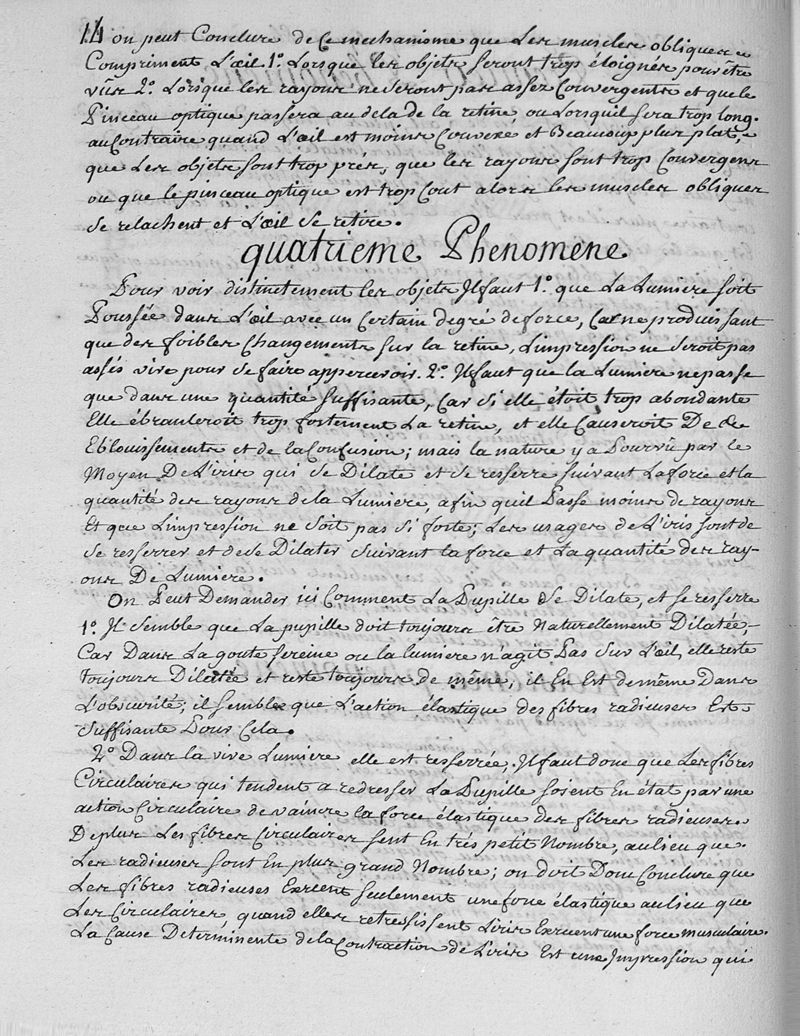 14 on peut Conclure de Ce mechanisme que Les muscles obliques
Compriment L'œil 1° Lorsque les objets seront trop éloignés pour être
vûs 2° Lorsque les rayons ne seront pas assez Convergents et que le
Pinceau optique passera au dela de la retine, ou Lorsqu'il sera trop long.
au Contraire quand L'œil est moins Convexe et Beaucoup plus plat,
que Les objets sont trop près, que les rayons sont trop Convergens
ou que le pinceau optique est trop Court alors les muscles obliques
se relachent et L'œil se retire.
quatrieme Phenomene
Pour voir distinctement les objets Il faut 1° que La Lumiere soit
Poussée dans L'œil avec un Certain degré de force, Car ne produissant
que des foibles Changements sur la retine, L'impression ne seroit pas
assés vive pour se faire appercevoir. 2° Il faut que la Lumiere ne passe
que dans une quantité suffisante, Car si elle étoit trop abondante
Elle ébranleroit trop fortement La retine, et elle Causeroit De de
Eblouissements et de la Confusion; mais la nature y a Pourvû par le
Moyen De L'iris qui se Dilate et se resserre suivant La force et la
quantité des rayons de la Lumiere, afin qu'il Passe moins de rayons
Et que L'impression ne soit pas si forte; Les usages de L'iris sont de
se resserrer et de se Dilater suivant la force et La quantité des ray-
ons De Lumiere.
On Peut Demander ici Comment La Pupille se Dilate, et se resserre
1° Il semble que La pupille doit toujours être Naturellement Dilatée,
Car Dans La goute sereine ou la lumiere n'agit Pas sur L'œil, elle reste
toujours Dilatée et reste toujours de même, il En Est de même Dans
L'obscurité; il semble que L'action élastique des fibres radieuses Est
suffisante Pour Cela.
2° Dans la vive Lumiere elle est resserrée, Il faut donc que Les fibres
Circulaires qui tendent a redresser La Pupille soient En état par une
action Circulaire de vaincre la force élastique des fibres radieuses.
De plus Les fibres Circulaires sont En très petit Nombre, au lieu que
Les radieuses sont En plus grand Nombre; on doit Donc Conclure que
Les fibres radieuses Exercent seulement une force élastique au lieu que
Les Circulaires, quand elles retressissent L'iris Exercent une force musculaire.
La Cause Determinente de la Contraction de L'iris Est une Impression qui